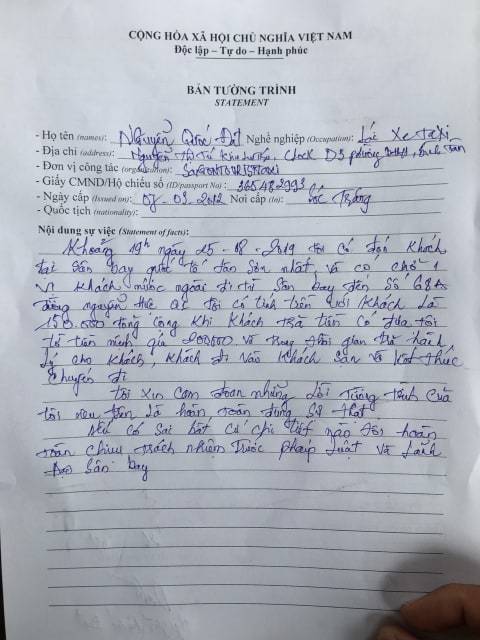 CỘNG HÒA XÃ HỘI CHỦ NGHĨA VIỆT NAM
Độc lập – Tự do – Hạnh phúc
BẢN TƯỜNG TRÌNH
STATEMENT
- Họ tên (names): Nguyễn Quốc Đạt Nghề nghiệp (Occupation): Lái xe taxi
- Địa chỉ (address): Nguyễn Thị Tú D5 phường
- Đơn vị công tác (organization): SAIGONTOURIST TAXI
- Giấy CMND/Hộ chiếu số (ID/passport No): 365482993
- Ngày cấp (Issued on): 07-03-2012 Nơi cấp (In): Sóc Trăng
- Quốc tịch (nationality):
Nội dung sự việc (Statement of facts):
Khoảng 19h ngày 25-08-2019 tôi có đón khách
tại sân bay quốc tế tân sơn nhất và có chở 1
vị khách nước ngoài đi từ sân bay đến số 68A
đường nguyễn Huệ Q1 tôi có tính tiền với khách là
150.000 tổng cộng khi khách trả tiền có đưa tôi
tờ tiền mệnh giá 200000 và trong thời gian trả hành
lý cho khách, khách đi vào khách sạn và kết thúc
chuyến đi
tôi xin cam đoan những lời tường trình của
tôi nêu trên là hoàn toàn đúng sự thật.
Nếu có sai bất cứ chi tiết nào tôi hoàn
toàn chịu trách nhiệm trước pháp luật và lãnh
đạo sân bay